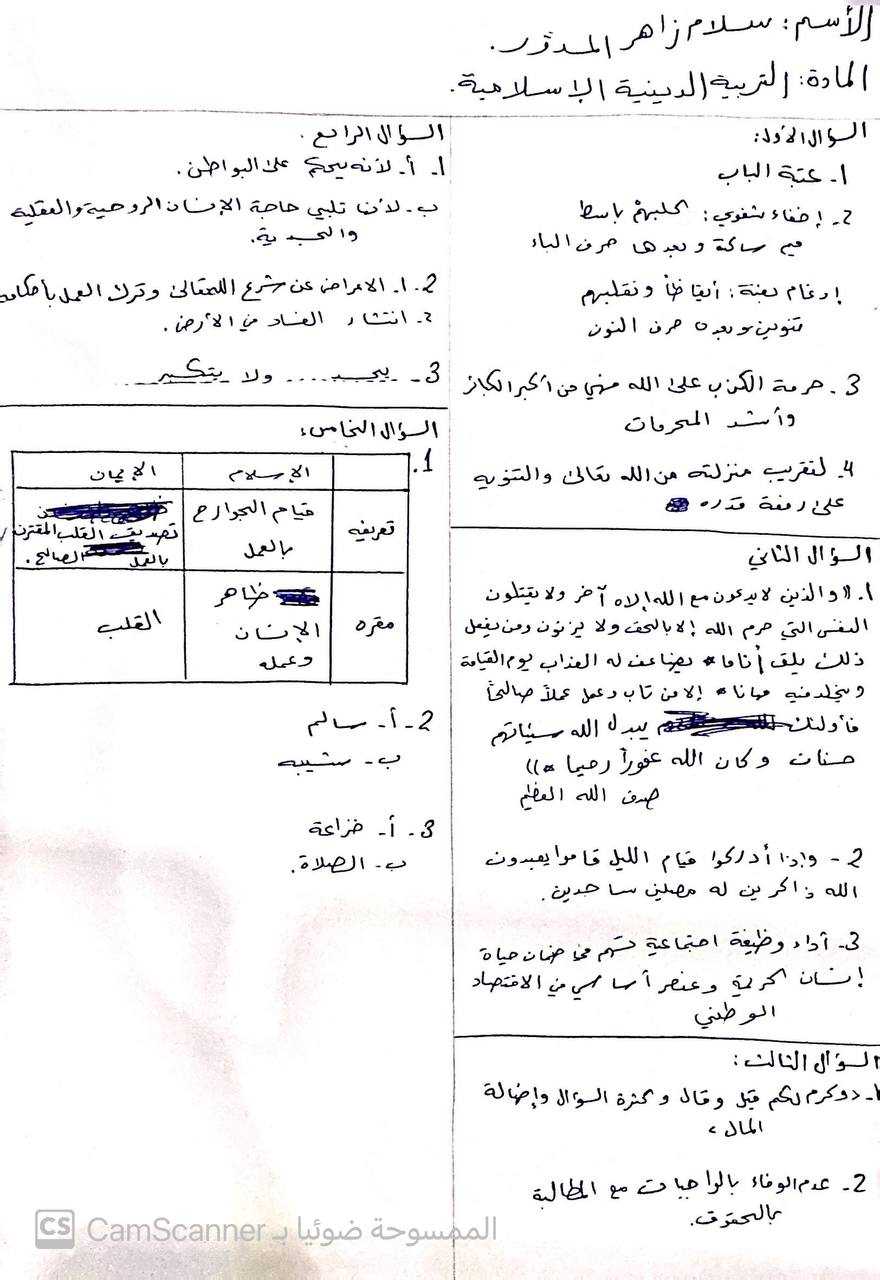 الأسم: سلام زاهر المدور.
المادة: التربية الدينية الإسلامية.
السؤال الأول:
1- عتبة الباب
2- إخفاء شفوي: كلبهم باسط
ميم ساكنة وبعدها حرف الباء
إدغام بغنة: أيقاظاً ونقلبهم
تنوين وبعده حرف النون
3- حرمة الكذب على الله فهي من أكبر الكبائر
وأشد المحرمات
4- لتقريب منزلته من الله تعالى والتنويه
على رفعة قدره
السؤال الثاني
1. "والذين لا يدعون مع الله إلاه آخر ولا يقتلون
النفس التي حرم الله إلا بالحق ولا يزنون ومن يفعل
ذلك يلق أثاما * يضاعف له العذاب يوم القيامة
ويخلد فيه مهانا * إلا من تاب وعمل عملاً صالحاً
فأولئك يبدل الله سيئاتهم
حسنات وكان الله غفوراً رحيما *))
صدق الله العظيم
2- وإذا أدركوا قيام الليل قاموا يعبدون
الله ذاكرين له مصلين ساجدين.
3- أداء وظيفة اجتماعية تسهم في ضمان حياة
إنسان كريمة وعنصر أساسي في الاقتصاد
الوطني
السؤال الثالث:
وكرم لكم قيل وقال وكثرة السؤال وإضالة
المال،
2- عدم الوفاء بالواجبات مع المطالبة
بالحقوق.
السؤال الرابع.
1- أ- لأنه يحكم على البواطن.
ب- لأنها تلبي حاجة الإنسان الروحية والعقلية
والجسدية.
2-1. الاعراض عن شرع الله تعالى وترك العمل بأحكامه
2- انتشار الفساد في الأرض.
3- يجحد .... ولا يتكبر
السؤال الخامس:
1.
الإسلام الإيمان
تعريفه قيام الجوارح بالعمل تصديق القلب المقترن بالعمل الصالح.
مقره ظاهر الإنسان وعمله القلب
2- أ- سالم
ب- شيبه
3- أ- خزاعة
ب- الصلاة.
CS الممسوحة ضوئيا بـ CamScanner